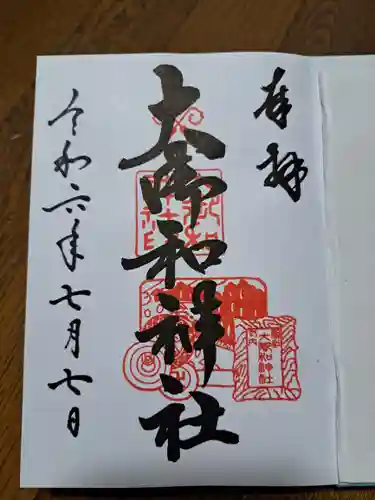 奉拝
大御和神社
令和六年七月七日
大御和神社